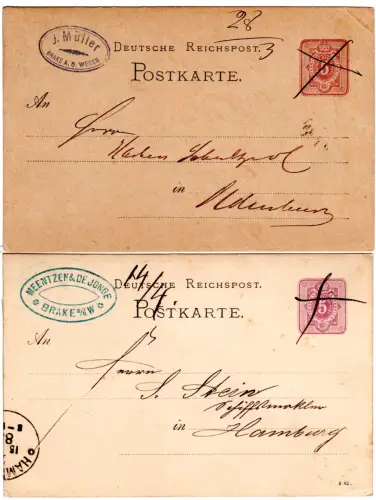 28
3
J. Müller
BRAKE A. D. WESER.
DEUTSCHE REICHSPOST.
POSTKARTE.
5
An
Herrn
in
Oldenburg
14/4.
MEENTZEN & DE JONGE
BRAKE a/W
DEUTSCHE REICHSPOST.
POSTKARTE.
5
An
Herrn
S. Stein
Schiffsmakler
in
Hamburg
15
HAM